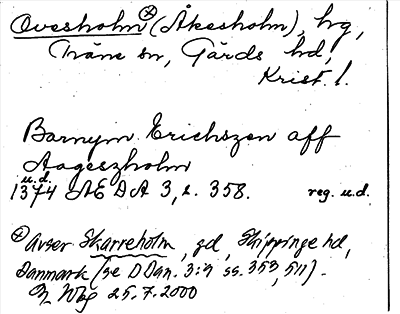 Ovesholm ⊗ (Åkesholm), hg,
Träne sn, Gärds hd,
Krist. l.
Barnym Erichszen aff
Aageszholm
u.d.
1374 ÆDA 3, s. 358. reg. u.d.
⊗ Avser Skarreholm, gd, Skippinge hd,
Danmark (se DDan. 3:9 ss. 353, 511).
25.7.2000